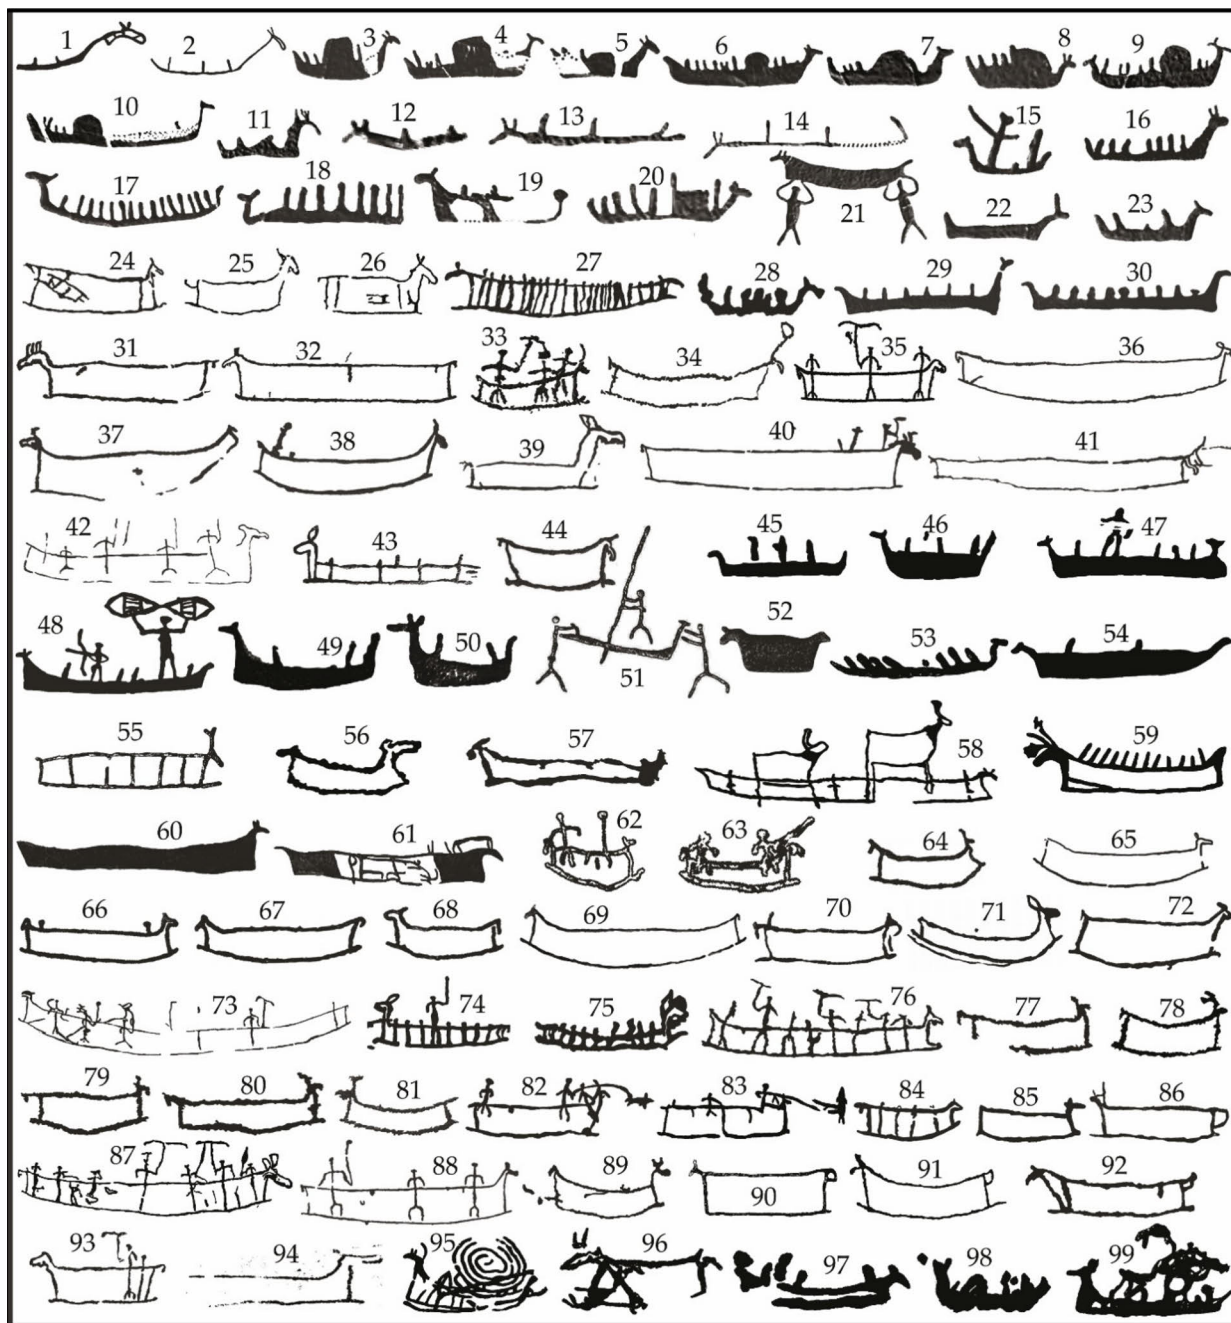 1 2 3 4 5 6 7 8 9
10 11 12 13 14 15 16
17 18 19 20 21 22 23
24 25 26 27 28 29 30
31 32 33 34 35 36
37 38 39 40 41
42 43 44 45 46 47
48 49 50 51 52 53 54
55 56 57 58 59
60 61 62 63 64 65
66 67 68 69 70 71 72
73 74 75 76 77 78
79 80 81 82 83 84 85 86
87 88 89 90 91 92
93 94 95 96 97 98 99